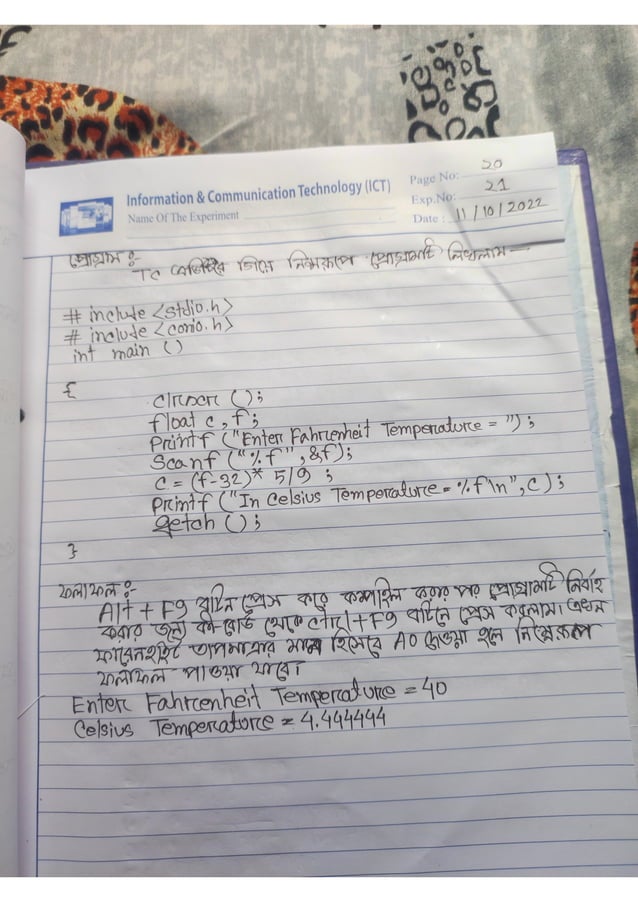 Information & Communication Technology (ICT)
Name Of The Experiment
Page No: 20
Exp.No: 21
Date : 11/10/2022
প্রোগ্রাম :-
TC এডিটরে গিয়ে নিম্নরূপে প্রোগ্রামটি লিখলাম —
# include <stdio.h>
# include <conio.h>
int main ()
{
clrscr ();
float c, f;
printf ("Enter Fahrenheit Temperature = ");
Scanf ("%f", &f);
c = (f-32)* 5/9 ;
printf ("In Celsius Temperature = %f\n", c);
getch ();
}
ফলাফল :-
Alt + F9 বাটন প্রেস করে কম্পাইল করার পর প্রোগ্রামটি নির্বাহ
করার জন্য কী-বোর্ড থেকে ctrl+F9 বাটনে প্রেস করলাম। এখন
ফারেনহাইট তাপমাত্রার মান হিসেবে 40 দেওয়া হলে নিম্নরূপ
ফলাফল পাওয়া যাবে।
Enter Fahrenheit Temperature = 40
Celsius Temperature = 4.444444